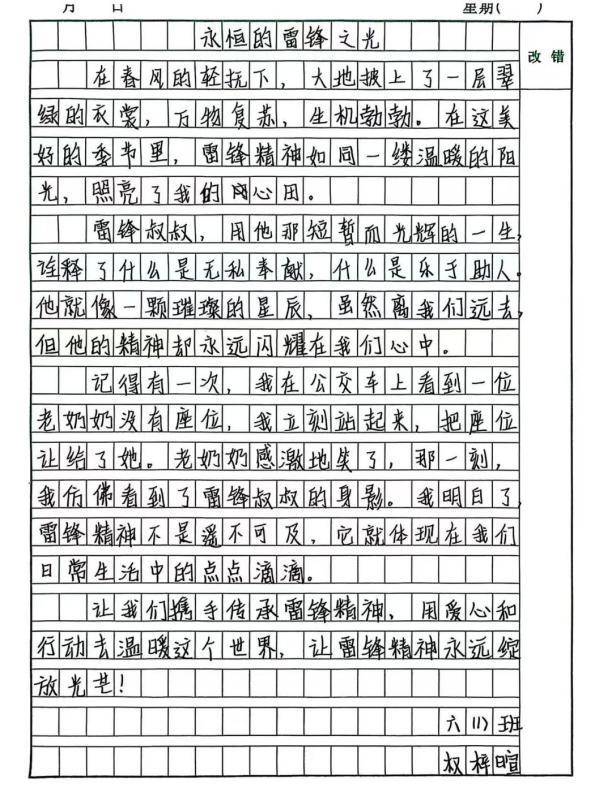 月 日 星期( )
改错
永恒的雷锋之光
在春风的轻抚下，大地披上了一层翠
绿的衣裳，万物复苏，生机勃勃。在这美
好的季节里，雷锋精神如同一缕温暖的阳
光，照亮了我的心田。
雷锋叔叔，用他那短暂而光辉的一生，
诠释了什么是无私奉献，什么是乐于助人。
他就像一颗璀璨的星辰，虽然离我们远去，
但他的精神却永远闪耀在我们心中。
记得有一次，我在公交车上看到一位
老奶奶没有座位，我立刻站起来，把座位
让给了她。老奶奶感激地笑了，那一刻，
我仿佛看到了雷锋叔叔的身影。我明白了，
雷锋精神不是遥不可及，它就体现在我们
日常生活中的点点滴滴。
让我们携手传承雷锋精神，用爱心和
行动去温暖这个世界，让雷锋精神永远绽
放光芒！
六(1)班
权梓暄